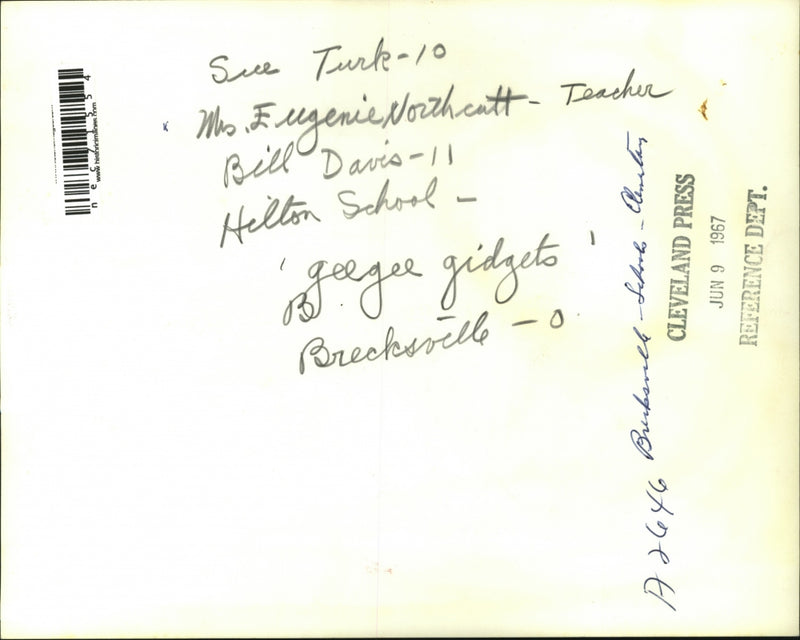 Sue Turk-10
Mrs. Eugenie Northcutt - Teacher
Bill Davis-11
Hilton School -
'geegee gidgets'
B
Brecksville - O
A 2646 Brecksville - Schools - Elementary
CLEVELAND PRESS
JUN 9 1967
REFERENCE DEPT.